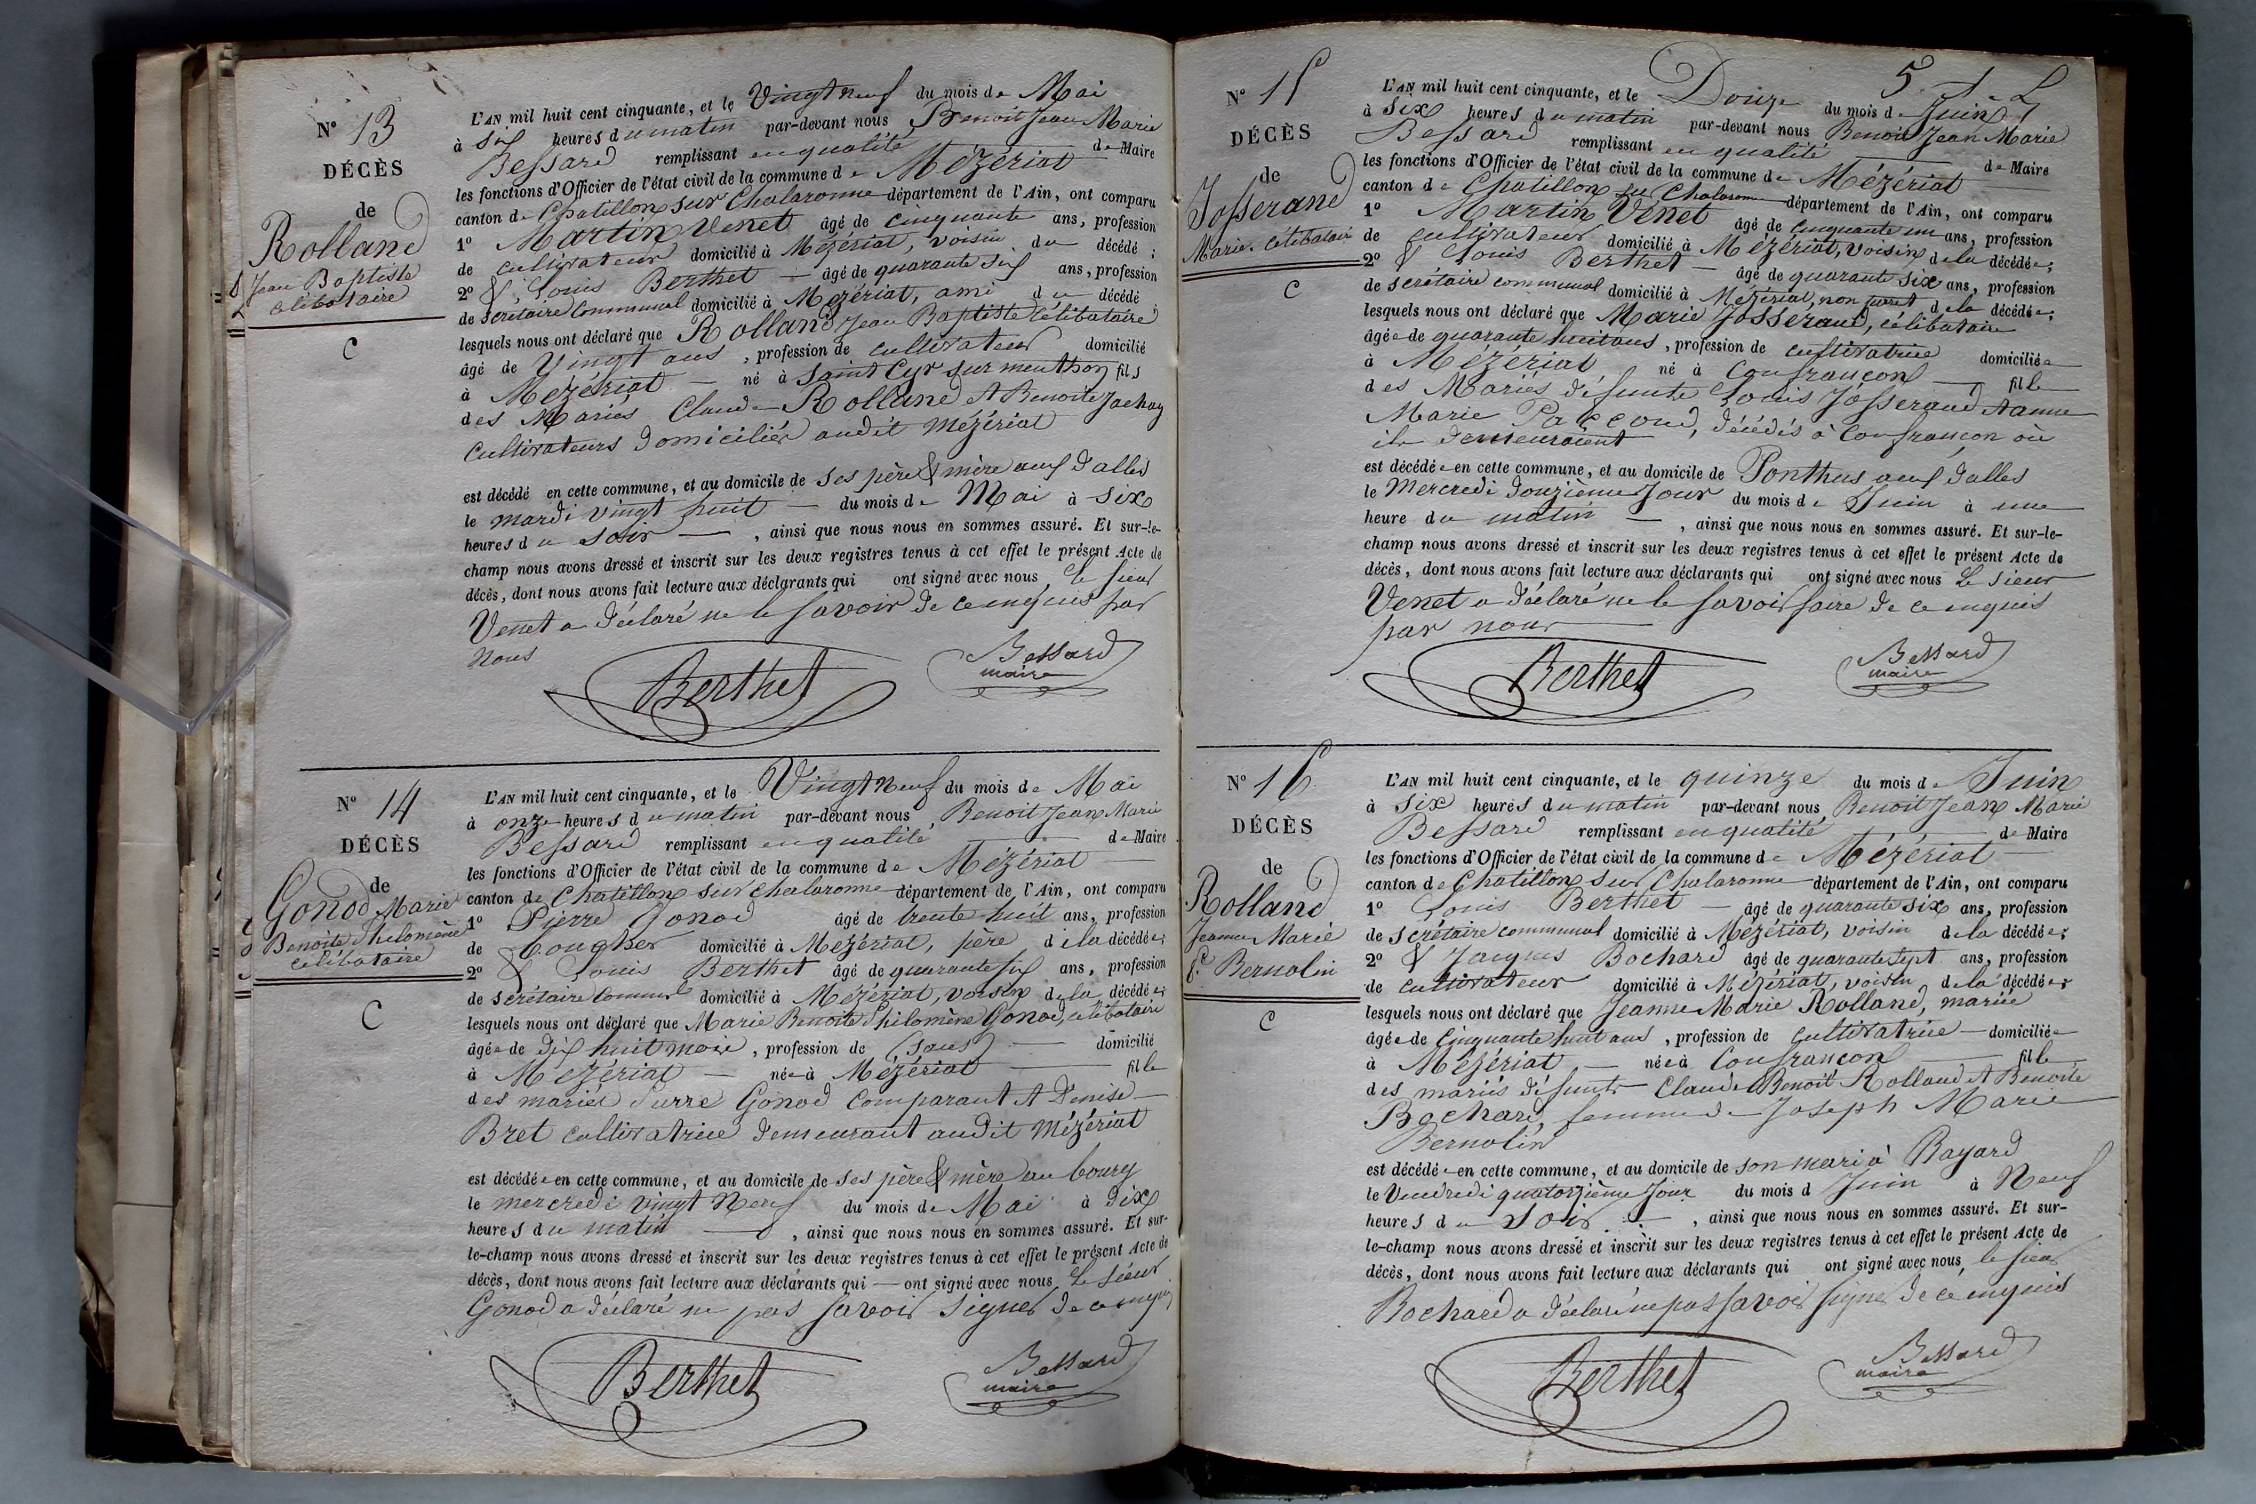 N° 13
DÉCÈS
de
Rolland
Jean Baptiste
célibataire
C
L'AN mil huit cent cinquante, et le Vingt neuf du mois de Mai
à six heures du matin par-devant nous Benoit Jean Marie
Bessard remplissant en qualité de Maire
les fonctions d'Officier de l'état civil de la commune de Mézériat
canton de Chatillon sur Chalaronne département de l'Ain, ont comparu
1° Martin Venet âgé de cinquante ans, profession
de cultivateur domicilié à Mézériat, voisin du décédé ;
2° & Louis Berthet âgé de quarante six ans, profession
de secrétaire Communal domicilié à Mézériat, ami du décédé
lesquels nous ont déclaré que Rolland Jean Baptiste célibataire
âgé de Vingt ans, profession de cultivateur domicilié
à Mézériat né à Saint Cyr sur menthon fils
des Mariés Claude Rolland et Benoite Jachay
Cultivateurs domiciliés audit Mézériat
est décédé en cette commune, et au domicile de ses père & mère auf d'alles
le mardi vingt huit du mois de Mai à six
heures du soir, ainsi que nous nous en sommes assuré. Et sur-le-
champ nous avons dressé et inscrit sur les deux registres tenus à cet effet le présent Acte de
décès, dont nous avons fait lecture aux déclarants qui ont signé avec nous, le sieur
Venet a déclaré ne le savoir de ce enquis par
nous
Berthet
Bessard
maire
N° 14
DÉCÈS
de
Gonod Marie
Benoite Philomène
célibataire
C
L'AN mil huit cent cinquante, et le Vingt Neuf du mois de Mai
à onze heures du matin par-devant nous Benoit Jean Marie
Bessard remplissant en qualité de Maire
les fonctions d'Officier de l'état civil de la commune de Mézériat
canton de Chatillon sur Chalaronne département de l'Ain, ont comparu
1° Pierre Gonod âgé de trente huit ans, profession
de domicilié à Mézériat, père de la décédée ;
2° & Louis Berthet âgé de quarante six ans, profession
de secrétaire Commul domicilié à Mézériat, voisin de la décédée ;
lesquels nous ont déclaré que Marie Benoite Philomène Gonod, célibataire
âgée de dix huit mois, profession de (sans) domicilié
à Mézériat née à Mézériat fille
des mariés Pierre Gonod comparant et Denise
Bret cultivatrice demeurant audit Mézériat
est décédée en cette commune, et au domicile de ses père & mère au bourg
le mercredi vingt Neuf du mois de Mai à dix
heures du matin, ainsi que nous nous en sommes assuré. Et sur-
le-champ nous avons dressé et inscrit sur les deux registres tenus à cet effet le présent Acte de
décès, dont nous avons fait lecture aux déclarants qui ont signé avec nous, le sieur
Gonod a déclaré ne pas savoir signer de ce enquis
Berthet
Bessard
maire
N° 15
DÉCÈS
de
Josserand
Marie. célibataire
C
L'AN mil huit cent cinquante, et le Douze du mois de Juin
à six heures du matin par-devant nous Benoit Jean Marie
Bessard remplissant en qualité de Maire
les fonctions d'Officier de l'état civil de la commune de Mézériat
canton de Chatillon sur Chalaronne département de l'Ain, ont comparu
1° Martin Venet âgé de cinquante un ans, profession
de cultivateur domicilié à Mézériat, voisin de la décédée ;
2° & Louis Berthet âgé de quarante six ans, profession
de secrétaire communal domicilié à Mézériat, non parent de la décédée ;
lesquels nous ont déclaré que Marie Josserand, célibataire
âgée de quarante huit ans, profession de cultivatrice domiciliée
à Mézériat né à Confrançon fille
des Mariés défunts Louis Josserand et anne
Marie Paccoud, décédés à Confrançon où
ils demeuraient
est décédée en cette commune, et au domicile de Ponthus auf d'alles
le Mercredi douzième Jour du mois de Juin à une
heure du matin, ainsi que nous nous en sommes assuré. Et sur-le-
champ nous avons dressé et inscrit sur les deux registres tenus à cet effet le présent Acte de
décès, dont nous avons fait lecture aux déclarants qui ont signé avec nous Le sieur
Venet a déclaré ne le savoir faire de ce enquis
par nous
Berthet
Bessard
maire
N° 16
DÉCÈS
de
Rolland
Jeanne Marie
fe Bernolin
C
L'AN mil huit cent cinquante, et le quinze du mois de Juin
à six heures du matin par-devant nous Benoit Jean Marie
Bessard remplissant en qualité de Maire
les fonctions d'Officier de l'état civil de la commune de Mézériat
canton de Chatillon sur Chalaronne département de l'Ain, ont comparu
1° Louis Berthet âgé de quarante six ans, profession
de secrétaire communal domicilié à Mézériat, voisin de la décédée ;
2° & Jacques Bochard âgé de quarante sept ans, profession
de cultivateur domicilié à Mézériat, voisin de la décédée ;
lesquels nous ont déclaré que Jeanne Marie Rolland, mariée
âgée de Cinquante huit ans, profession de cultivatrice domiciliée
à Mézériat née à Confrançon fille
des mariés défunts Claude Benoit Rolland et Benoite
Bochard, femme de Joseph Marie
Bernolin
est décédée en cette commune, et au domicile de son mari à Bayard
le Vendredi quatorzième Jour du mois d Juin à Neuf
heures du soir, ainsi que nous nous en sommes assuré. Et sur-
le-champ nous avons dressé et inscrit sur les deux registres tenus à cet effet le présent Acte de
décès, dont nous avons fait lecture aux déclarants qui ont signé avec nous, le sieur
Bochard a déclaré ne pas savoir signer de ce enquis
Berthet
Bessard
maire